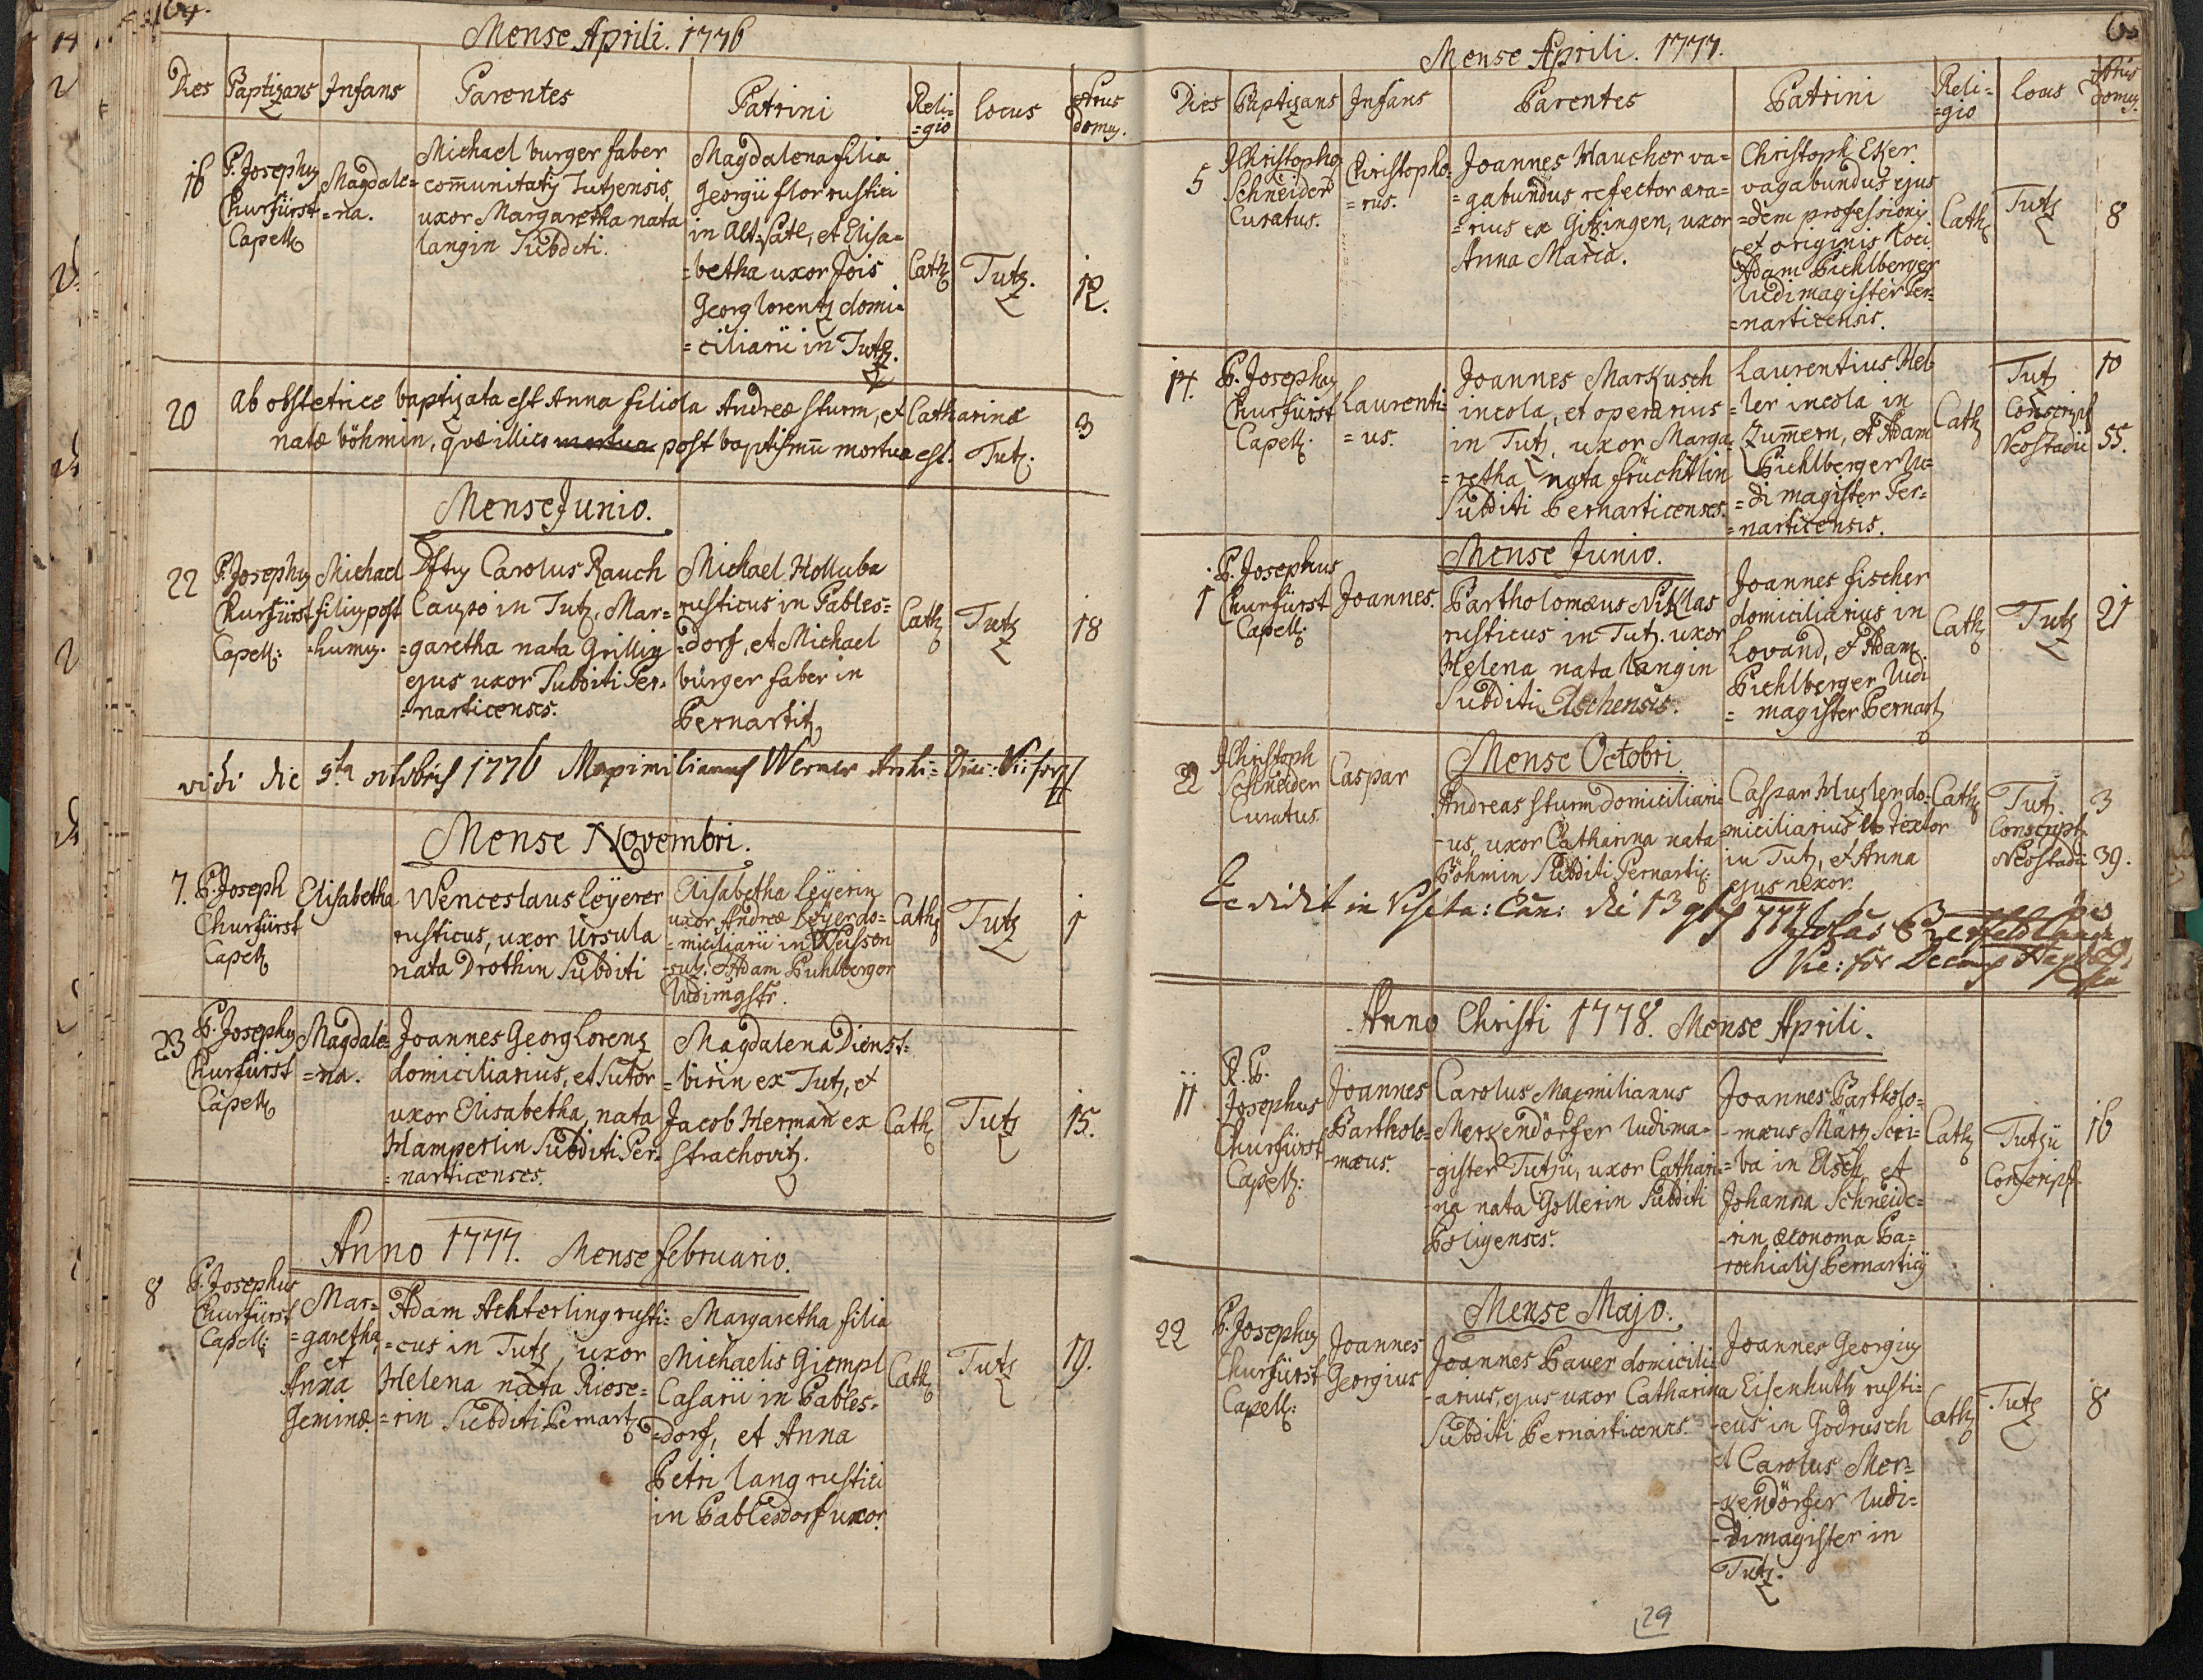 Mense Aprili. 1776
Dies Baptizans Infans Parentes Patrini Reli= =gio Locus Nrus domus.
16 P. Josephus Churfürst Capell Magdale= =na.
Michael burger faber
communitatis Tutzensis,
uxor Margaretha nata
Langin Subditi.
Magdalena filia
Georgii flor rustici
in Alt-Satl, et Elisa=
=betha uxor Jois
Georg Lorentz domi=
=ciliarii in Tutz.
Cath Tutz. 12.
20 Ab obstetrice baptizata est Anna filiola Andreæ Sturm, et Catharinæ 3
natæ böhmin, quæ illico mortua post baptismū mortua est. Tutz.
Mense Junio.
22 P. Josephus Churfürst Capell: Michael filius post =humus.
Dftus Carolus Rauch
Caupo in Tutz, Mar=
=garetha nata Grillin
ejus uxor Subditi Per=
=narticenses.
Michael Holluba
rusticus in Pables=
=dorf, et Michael
bürger faber in
Pernartitz
Cath Tutz 18
vidi die 5ta octobris 1776 Maximilianus Werner
Mense Novembri.
7. P. Joseph Churfürst Capell Elisabetha
Wenceslaus Leyerer
rusticus, uxor Ursula
nata Drothin Subditi
Elisabetha Leyerin
uxor Andreæ Leyer do=
=miciliarii in Weissen
=sulz: et Adam Puhlberger
Ludimgstr.
Cath Tutz 1
23 P. Josephus Churfürst Capell Magdale= =na.
Joannes Georg Lorenz
domiciliarius, et Sutor
uxor Elisabetha, nata
Hamperlin Subditi Per=
=narticenses.
Magdalena Dienst=
=birin ex Tutz, et
Jacob Herman ex
Strachovitz.
Cath Tutz 15.
Anno 1777. Mense februario.
8 P. Josephus Churfürst Capell: Mar= =garetha, et Anna Geminæ.
Adam Achterling rusti=
=cus in Tutz, uxor
Helena nata Riese=
=rin Subditi Pernart
Margaretha filia
Michaelis Giempl
Casarii in Pables=
=dorf, et Anna
Petri Lang rustici
in Pablesdorf uxor.
Cath Tutz 19.
Mense Aprili. 1777.
Dies Baptizans Infans Parentes Patrini Reli= =gio Locus Nrus domus.
5 JChristophg Schneider Curatus. Christopho= =rus.
Joannes Haucher va=
=gabundus refector æra=
=rius ex Gitzingen, uxor
Anna Maria.
Christoph Eker
vagabundus ejus
=dem professionis
et originis Loci
Adam Pichlberger
Ludimagister Per=
=narticensis.
Cath Tutz 8
14. P. Josephus Churfürst Capell: Laurenti= =us.
Joannes Markusch
incola, et operarius
in Tutz, uxor Marga=
=retha nata früchtlin
Subditi Pernarticenses.
Laurentius Hel=
=ler incola in
Zummern, et Adam
Pichlberger Lu=
=di magister Per=
=narticensis.
Cath Tutz 10
Conscript
Neostadii 55.
Mense Junio.
1 P. Josephus Churfürst Capell: Joannes.
Bartholomæus Niklas
rusticus in Tutz. uxor
Helena nata Langin
Subditi Elschensis.
Joannes fischer
domiciliarius in
Lovand, et Adam
Pichlberger Ludi
=magister Pernart
Cath Tutz 21
Mense Octobri.
22 JChristoph Schneider Curatus. Caspar
Andreas Sturm domiciliari=
-us, uxor Catharina nata
Böhmin Subditi Pernartic:
Caspar Huzler do=
=miciliarius et Textor
in Tutz, et Anna
ejus uxor.
Cath Tutz. 3
Conscript
Neostadii 39.
in Visita: Can: die 13
Anno Christi 1778. Mense Aprili.
11 R. P. Josephus Churfürst Capell: Joannes Bartholo= -mæus.
Carolus Maxmilianus
Merkendörfer Ludima=
-gister Tutzii, uxor Cathari=
-na nata Gollerin Subditi
Poligenses.
Joannes Bartholo=
-mæus März Scri=
=ba in Elsch, et
Johanna Schneide=
-rin æconoma Pa=
-rochialis Pernartig
Cath Tutzii 16
Conscript
Mense Majo.
22 P. Josephus Churfürst Capell: Joannes Georgius
Joannes Bauer domicili=
-arius, ejus uxor Catharina
Subditi Pernarticenses.
Joannes Georgius
Eisenhuth rusti=
-cus in Godrusch
et Carolus Mer=
-kendörfer Ludi=
-dimagister in
Tutz.
Cath Tutz 8
29